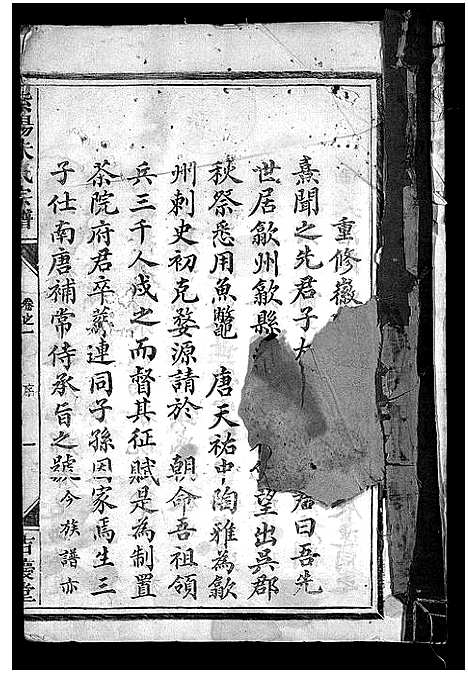 重修徽
熹聞之先君子太君曰吾先
世居歙州歙縣望出吳郡
秋祭悉用魚鼈 唐天祐中陶雅為歙
州刺史初克婺源請於 朝命吾祖領
兵三千人戍之而督其征賦是為制置
茶院府君卒葬連同子孫因家焉生三
子仕南唐補常侍承旨之號今族譜亦
紫陽朱氏宗譜 卷之 序 一